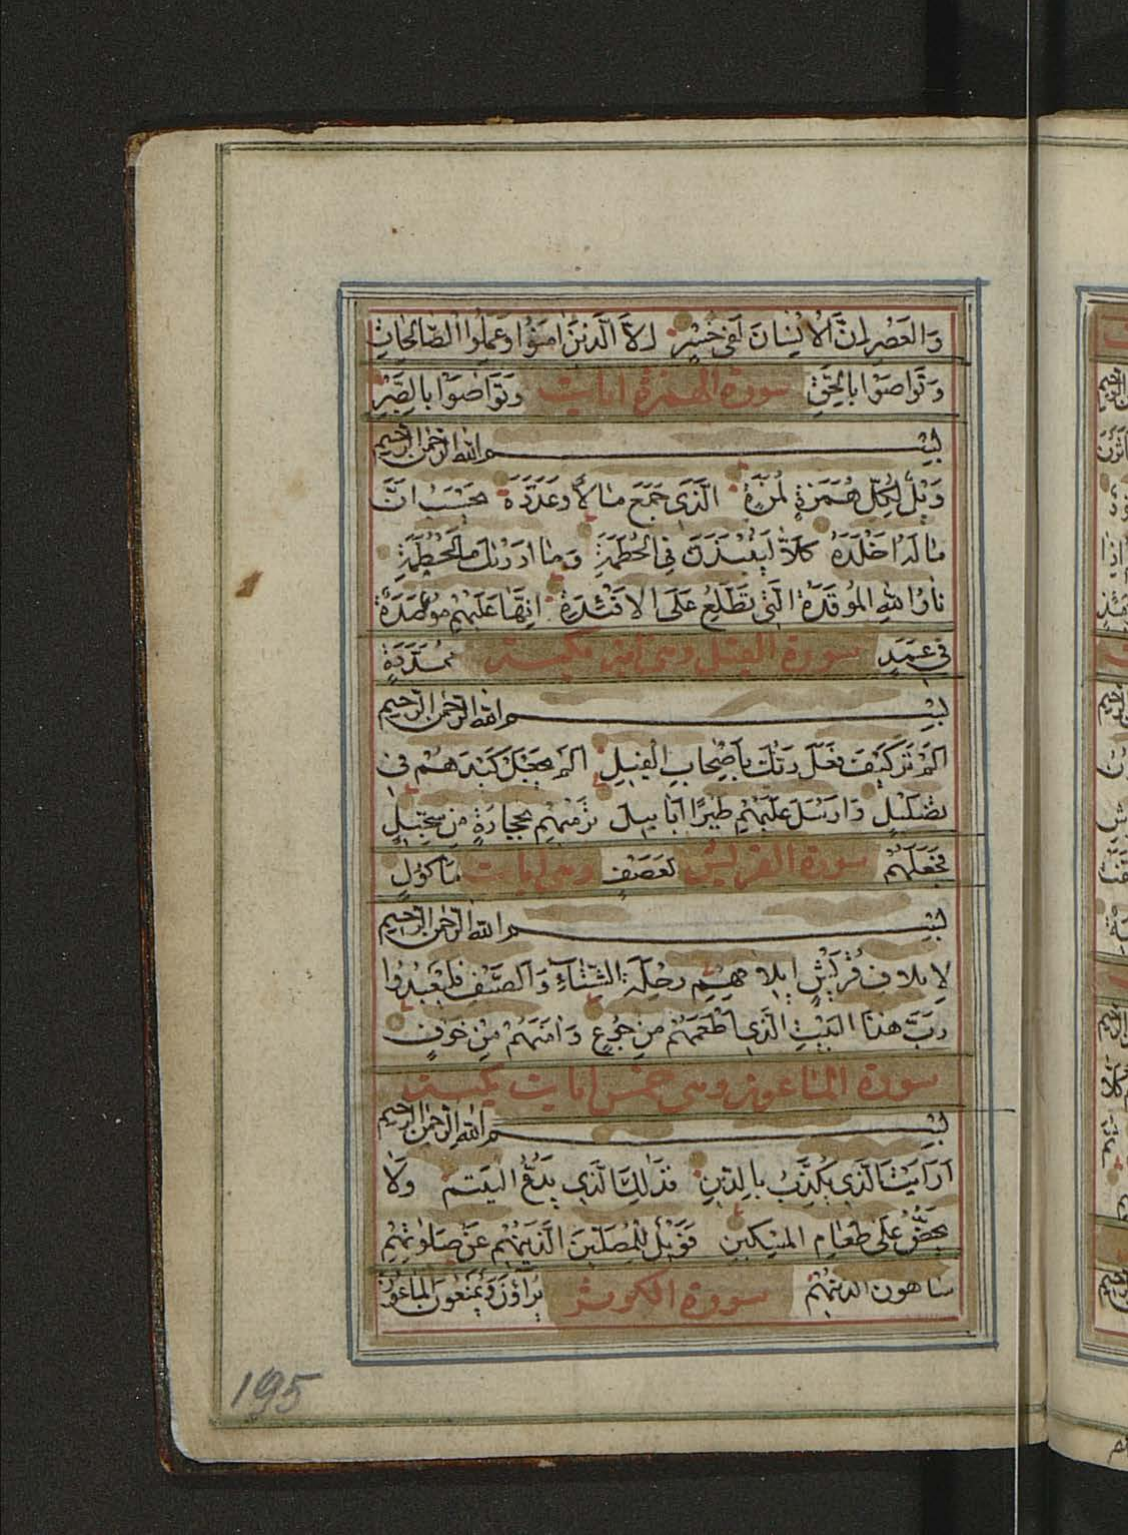 وَالعَصْرِ اِنَّ الاِنْسَانَ لَفى خُسْرٍ اِلاَّ الَّذينَ امَنُوا وَعَمِلُوا الصَّالِحَاتِ
وَتَوَاصَوْا بِالحَقِّ سورة الهمزة ايايت وَتَوَاصَوْا بِالصَّبْرِ
بِسْمِ اللهِ الرَّحْمٰنِ الرَّحيمِ
وَيْلٌ لِكُلِّ هُمَزةٍ لُمَزَةٍ الَّذَى جَمَعَ مَالاً وَعَدَّدَهُ يَحْسَبُ اَنَّ
مَالَهُ اَخْلَدَهُ كَلاَّ لَيُنْبَذَنَّ فِى الحُطَمَةِ وَمَا اَدْرٰىكَ مَا الحُطَمَةِ
نَارُ اللهِ المُوقَدَةُ الَّتى تَطَّلِعُ عَلَى الاَفْـئِدَةِ اِنَّهَا عَلَيْهِمْ مُوصَدَةٌ
فى عَمَدٍ سورة الفيل وهى مكيت مُمَدَّدَةٍ
بِسْمِ اللهِ الرَّحْمٰنِ الرَّحيمِ
اَلَمْ تَرَ كَيْفَ فَعَلَ رَبُّكَ بِاَصْحَابِ الْفِيلِ اَلَمْ يَجْعَلْ كَيْدَهُمْ فى
تَضْليلٍ وَاَرْسَلَ عَلَيْهِمْ طَيْرًا اَبَابيلَ تَرْميهِمْ بِحِجَارَةٍ مِنْ سِجّيلٍ
فَجَعَلَهُمْ سورة القريش كَعَصْفٍ وهى ايايت مَأكُولٍ
بِسْمِ اللهِ الرَّحْمٰنِ الرَّحيمِ
لِاِيلاَفِ قُرَيْشٍ اِيلاَفِهِمْ رِحْلَةَ الشِّتَاءِ وَالصَّيْفِ فَليَعْبُدُوا
رَبَّ هٰذَا البَيْتِ الَّذى اَطْعَمَهُمْ مِنْ جُوعٍ وَاٰمَنَهُمْ مِنْ خَوْفٍ
سورة الماعون وهى خمس ايايت مكيت
بِسْمِ اللهِ الرَّحْمٰنِ الرَّحيمِ
اَرَاَيْتَ الَّذى يُكَذِّبُ بِالدّينِ فَذٰلِكَ الَّذى يَدُعُّ اليَتيمَ وَلاَ
يَحُضُّ عَلٰى طَعَامِ المِسْكينِ فَوَيْلٌ لِلْمُصَلّينَ الَّذينَهُمْ عَنْ صَلَوٰتِهِمْ
سَاهُونَ الَّذينَهُمْ سورة الكوثر يُرَآؤُنَ وَيَمْنَعُونَ المَاعُونَ
195